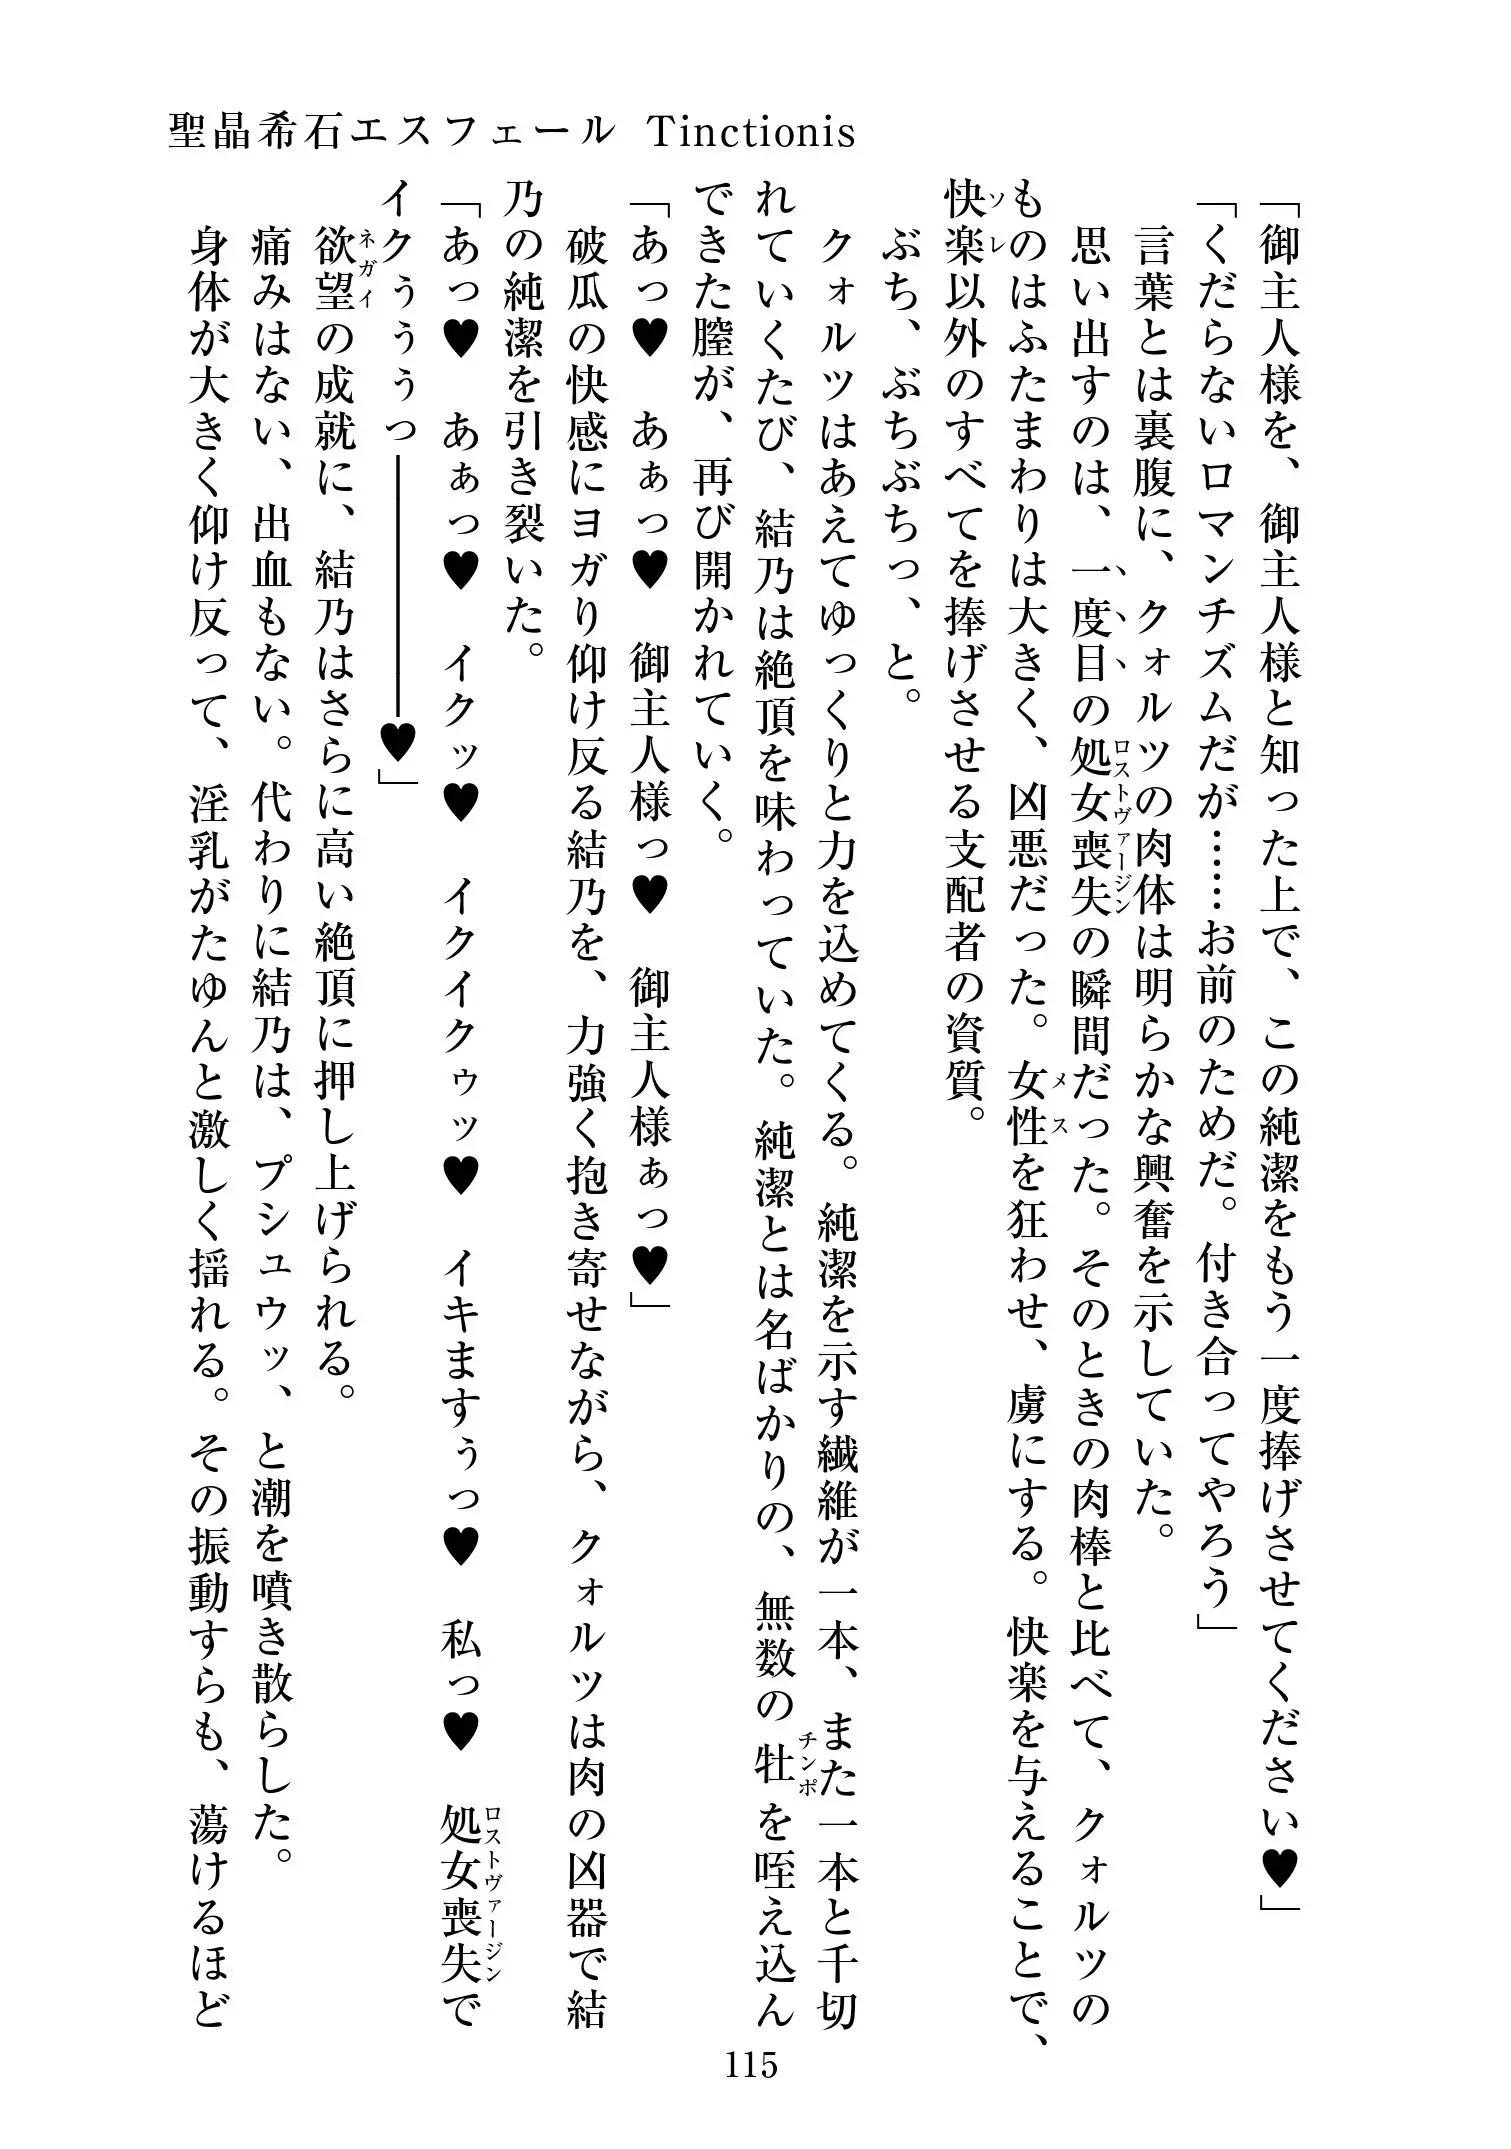 聖晶希石エスフェール Tinctionis
「御主人様を、御主人様と知った上で、この純潔をもう一度捧げさせてください♥」
「くだらないロマンチズムだが……お前のためだ。付き合ってやろう」
言葉とは裏腹に、クォルツの肉体は明らかな興奮を示していた。
思い出すのは、一度目の処女喪失の瞬間だった。そのときの肉棒と比べて、クォルツの
ロストヴァージン
ものはふたまわりは大きく、凶悪だった。女性を狂わせ、虜にする。快楽を与えることで、
メス
快楽以外のすべてを捧げさせる支配者の資質。
ソレ
ぶち、ぶちぶちっ、と。
クォルツはあえてゆっくりと力を込めてくる。純潔を示す繊維が一本、また一本と千切
れていくたび、結乃は絶頂を味わっていた。純潔とは名ばかりの、無数の牡を咥え込ん
チンポ
できた膣が、再び開かれていく。
「あっ♥　あぁっ♥　御主人様っ♥　御主人様ぁっ♥」
破瓜の快感にヨガり仰け反る結乃を、力強く抱き寄せながら、クォルツは肉の凶器で結
乃の純潔を引き裂いた。
「あっ♥　あぁっ♥　イクッ♥　イクイクゥッ♥　イキますぅっ♥　私っ♥　処女喪失で
ロストヴァージン
イクぅぅぅっ――――――♥」
欲望の成就に、結乃はさらに高い絶頂に押し上げられる。
ネガイ
痛みはない、出血もない。代わりに結乃は、プシュウッ、と潮を噴き散らした。
身体が大きく仰け反って、淫乳がたゆんと激しく揺れる。その振動すらも、蕩けるほど
115